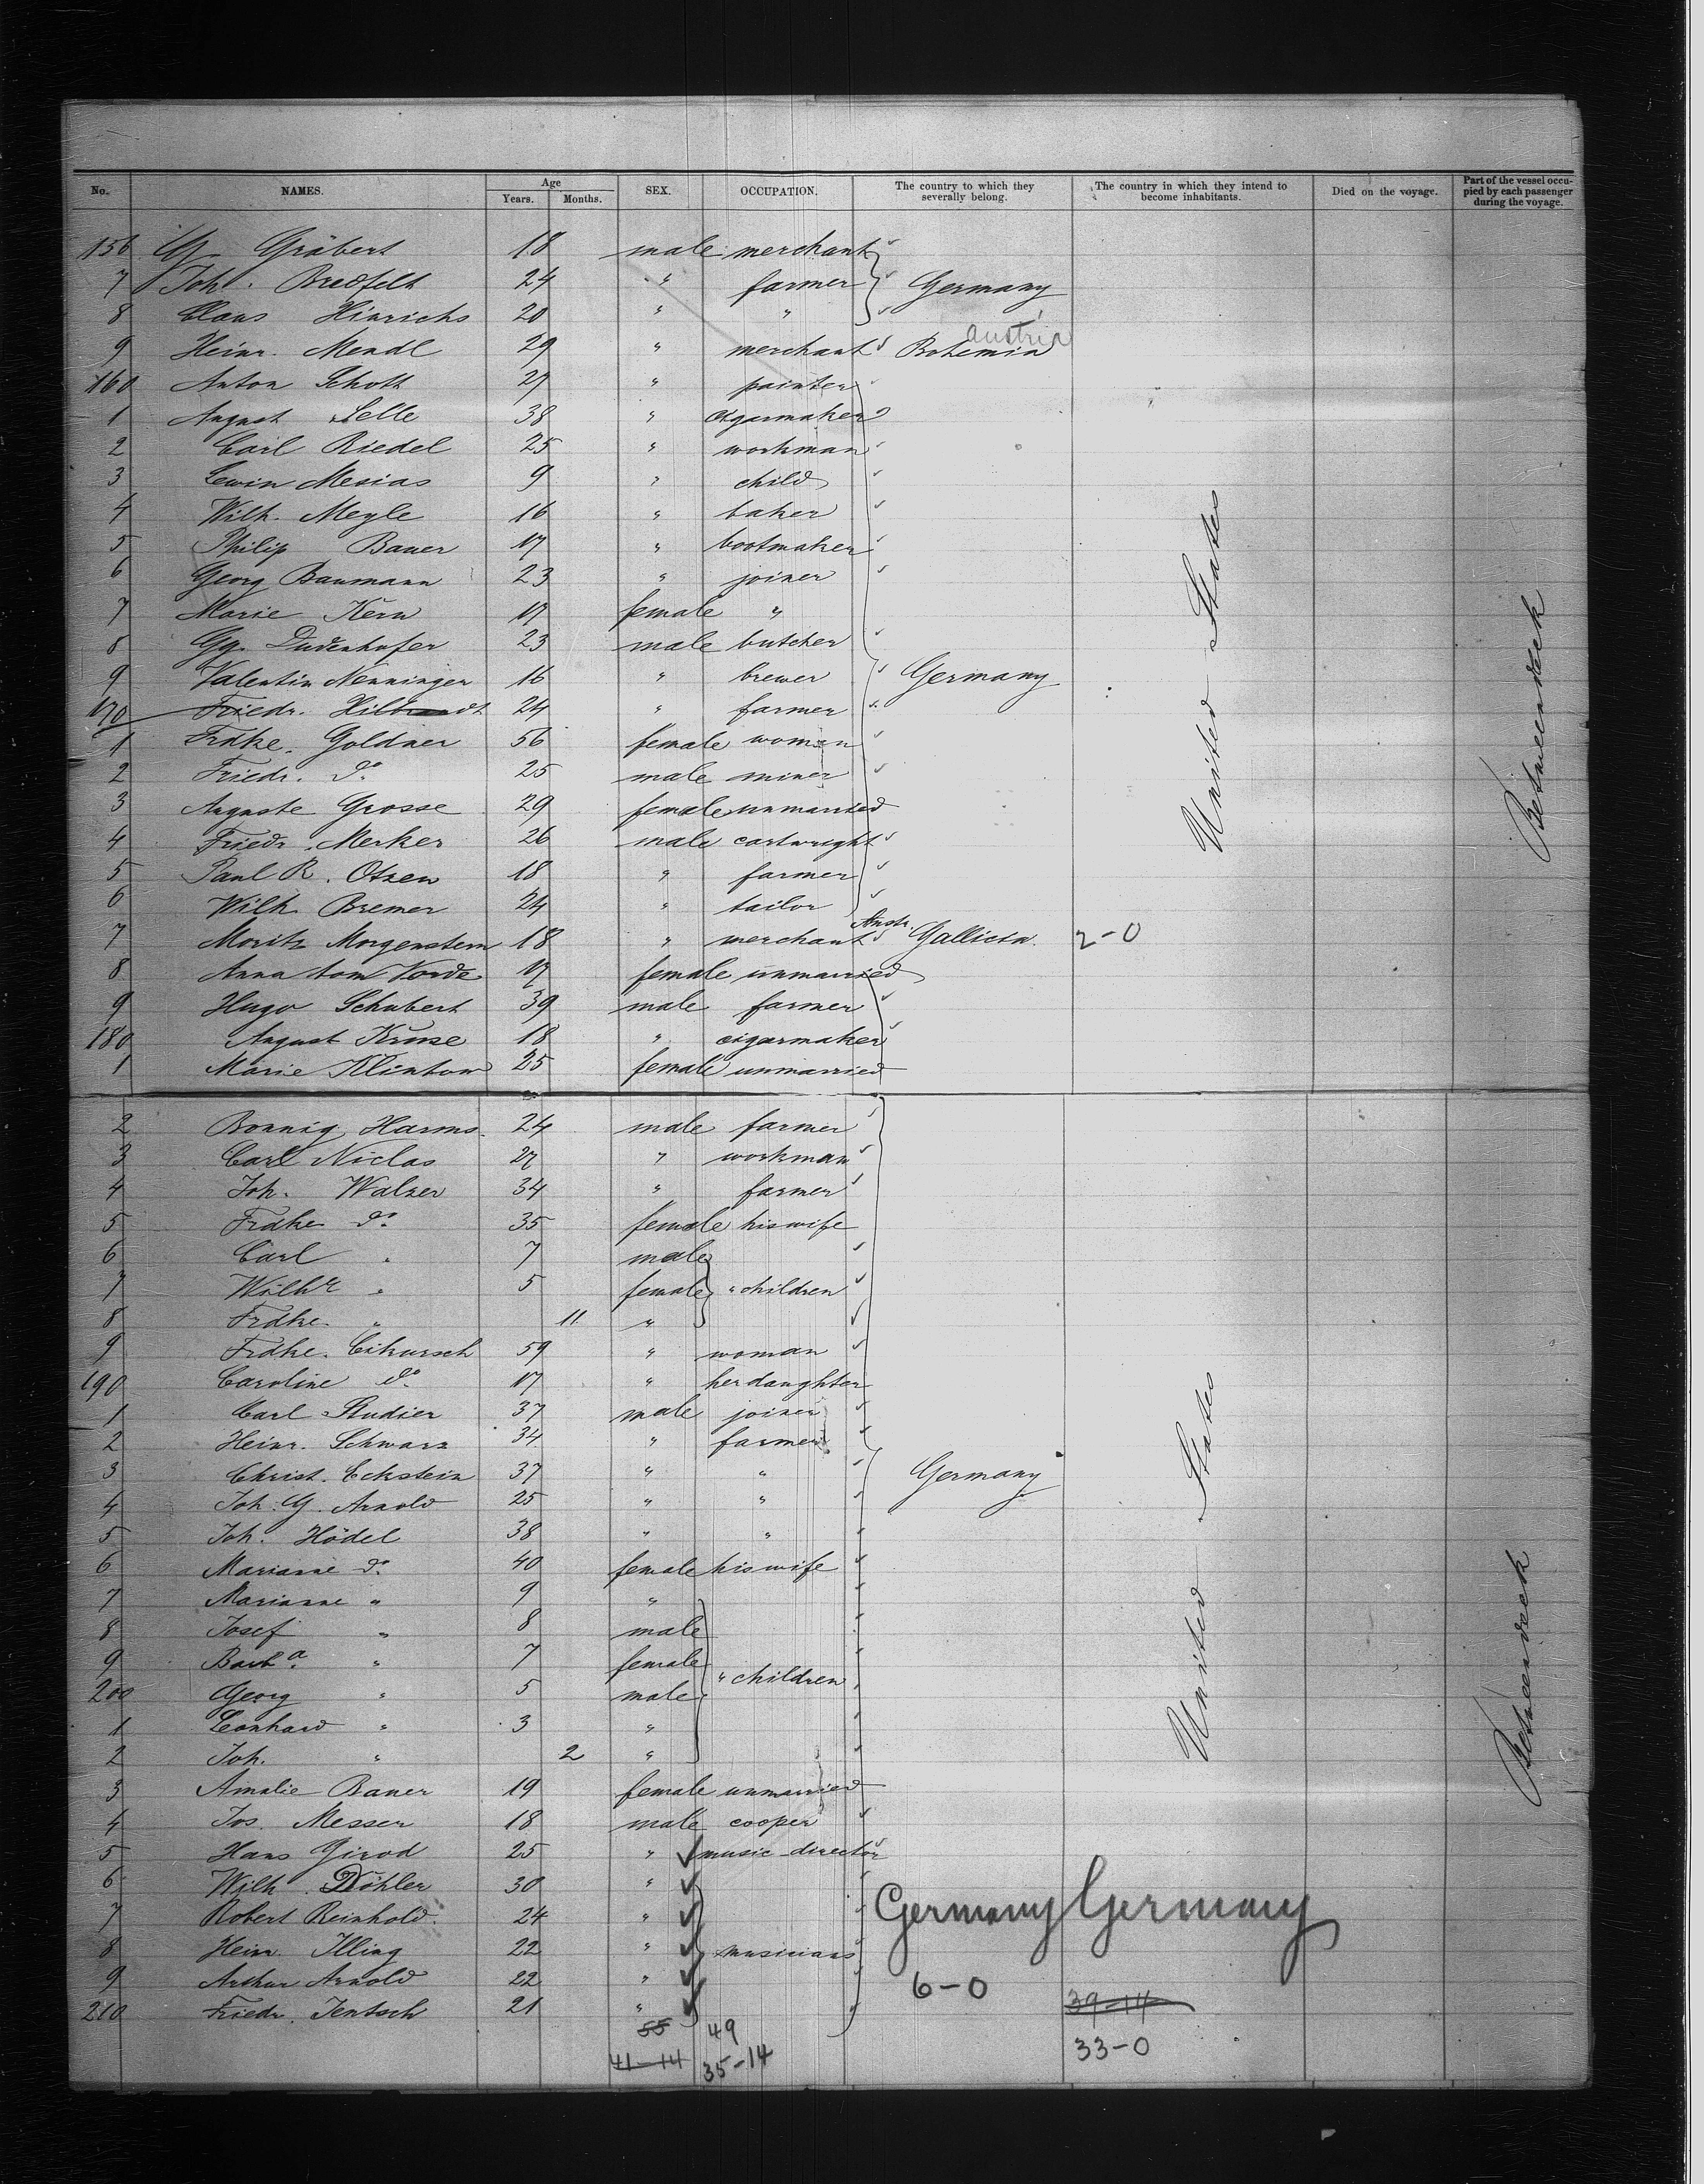 No. NAMES. Age Years. Months. SEX. OCCUPATION. The country to which they severally belong. The country in which they intend to become inhabitants. Died on the voyage. Part of the vessel occupied by each passenger during the voyage.
156 G. Gräbert 18 male merchant
7 Joh. Bredfeldt 24 " farmer Germany
8 Claus Hinrichs 20 " "
9 Heinr. Mendl 29 " merchant Bohemia Austria
160 Anton Schott 27 " painter
1 August Selle 38 " cigarmaker
2 Carl Riedel 25 " workman
3 Lewin Mesias 9 " child
4 Wilh. Meyle 16 " baker
5 Philip Bauer 17 " bootmaker
6 Georg Baumann 23 " joiner
7 Marie Kern 17 female "
8 Gg. Dudenhofer 23 male butcher
9 Valentin Nenninger 16 " brewer Germany
170 Friedr. Hilbrandt 24 " farmer
1 Frdke. Goldner 56 female woman
2 Friedr. do 25 male miner
3 Auguste Grosse 29 female unmarried
4 Friedr. Merker 26 male cartwright
5 Paul R. Otzen 18 " farmer
6 Wilh. Bremer 24 " tailor
7 Moritz Morgenstern 18 " merchant Austr. Gallicia 2-0
8 Anna tom Vorde 17 female unmarried
9 Hugo Schubert 39 male farmer
180 August Kruse 18 " cigarmaker
1 Marie Klintow 25 female unmarried
United States
Betweendeck
2 Bonnig Harms 24 male farmer
3 Carl Niclas 27 " workman
4 Joh. Walzer 34 " farmer
5 Frdke do 35 female his wife
6 Carl " 7 male
7 Wilhe " 5 female " children
8 Frdke " 11 "
9 Frdke. Cikursch 59 " woman
190 Caroline do 17 " her daughter
1 Carl Studier 37 male joiner
2 Heinr. Schwarz 34 " farmer
3 Christ. Eckstein 37 " " Germany
4 Joh. G. Arnold 25 " "
5 Joh. Hödel 38 " "
6 Marianne do 40 female his wife
7 Marianne " 9 "
8 Josef " 8 male
9 Barba " 7 female " children
200 Georg " 5 male
1 Leonhard " 3 "
2 Joh. " 2 "
3 Amalie Bauer 19 female unmarried
4 Jos. Messer 18 male cooper
5 Hans Girod 25 " music-director
6 Wilh. Döhler 30 "
7 Robert Reinhold 24 " Germany Germany
8 Heinr. Illing 22 " musicians
9 Arthur Arnold 22 " 6-0
210 Friedr. Jentsch 21 " 39-14
United States
Betweendeck
55 49 33-0
41-14 35-14